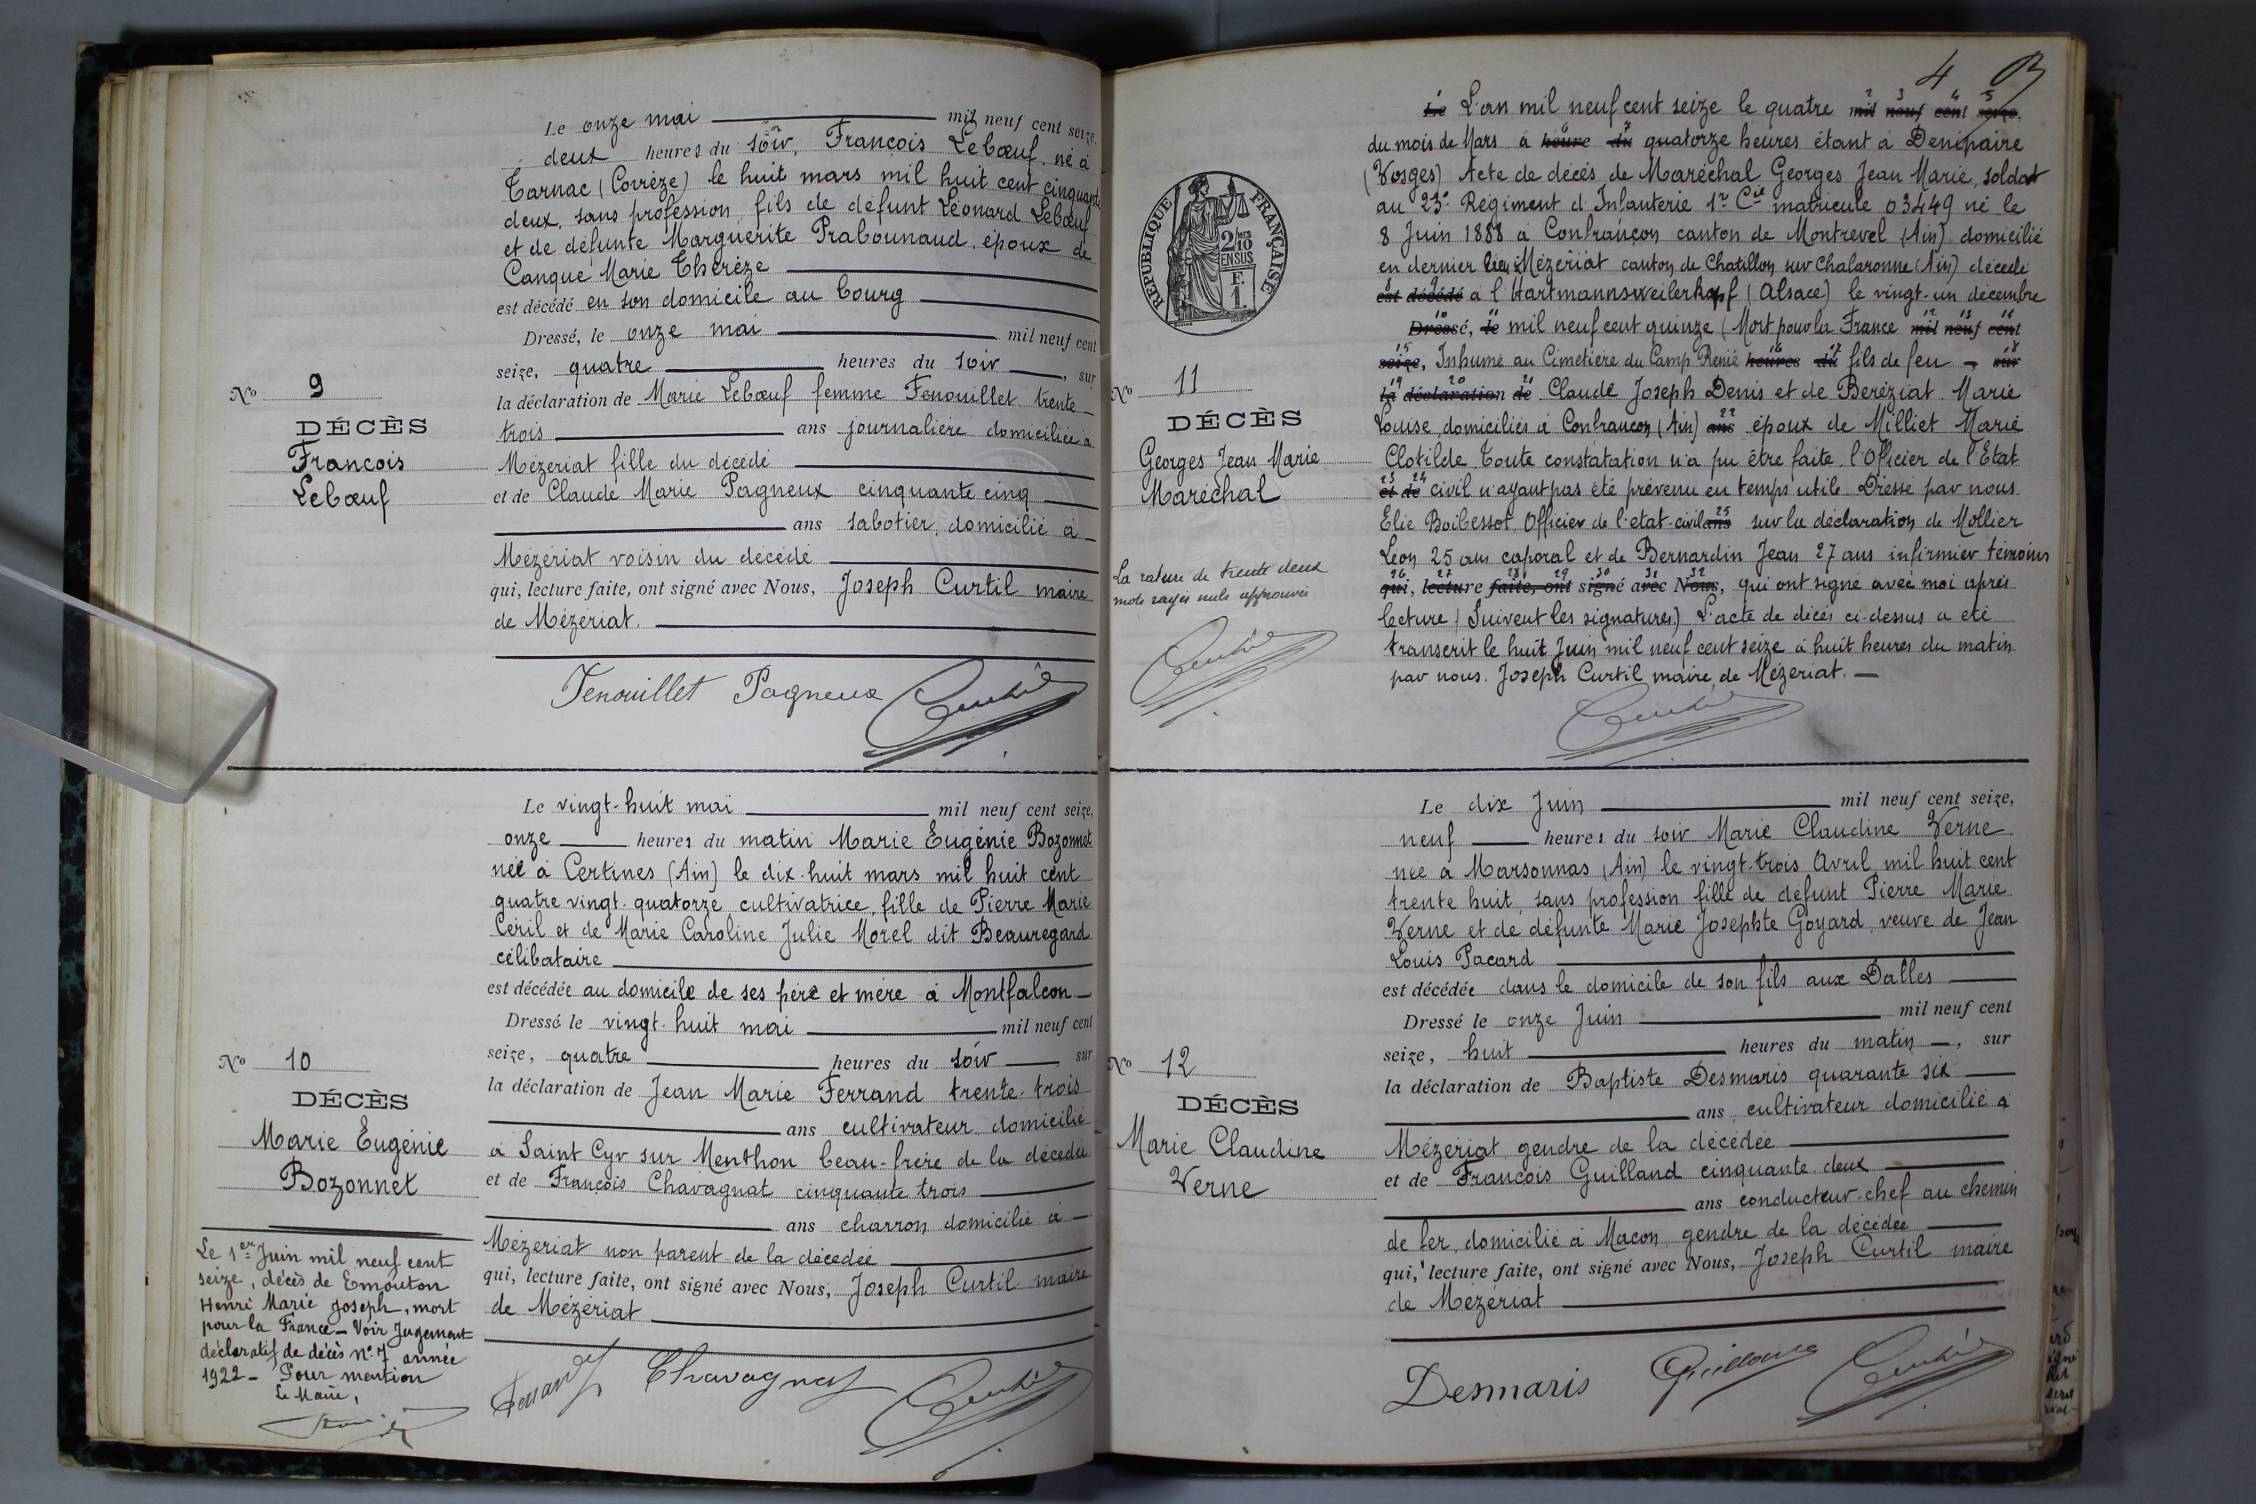 Le onze mai mil neuf cent seize,
deux heures du soir, François Lebœuf, né à
Tarnac (Corrèze) le huit mars mil huit cent cinquante
deux, sans profession, fils de défunt Léonard Lebœuf
et de défunte Marguerite Prabounaud, époux de
Canque Marie Thérèze
est décédé en son domicile au bourg
Dressé, le onze mai mil neuf cent
seize, quatre heures du soir, sur
No 9
la déclaration de Marie Lebœuf femme Fenouillet trente
DÉCÈS
trois ans journalière domiciliée à
François
Mézériat fille du décédé
Lebœuf
et de Claude Marie Pagneux cinquante cinq
ans sabotier, domicilié à
Mézériat voisin du décédé
qui, lecture faite, ont signé avec Nous, Joseph Curtil maire
de Mézériat.
Fenouillet Pagneux Curtil
Le vingt-huit mai mil neuf cent seize,
onze heures du matin Marie Eugénie Bozonnet
née à Certines (Ain) le dix-huit mars mil huit cent
quatre vingt-quatorze, cultivatrice, fille de Pierre Marie
Céril et de Marie Caroline Julie Morel dit Beauregard
célibataire
est décédée au domicile de ses père et mère à Montfalcon
Dressé le vingt-huit mai mil neuf cent
No 10
seize, quatre heures du soir, sur
DÉCÈS
la déclaration de Jean Marie Ferrand trente-trois
ans cultivateur domicilié
Marie Eugénie
à Saint Cyr sur Menthon beau-frère de la décédée
Bozonnet
et de François Chavagnat cinquante trois
ans charron domicilié à
Mézériat non parent de la décédée
qui, lecture faite, ont signé avec Nous, Joseph Curtil maire
de Mézériat
Le 1er Juin mil neuf cent
seize, décès de Emouton
Henri Marie Joseph, mort
pour la France - Voir Jugement
déclaratif de décès n° 7 année
1922 - Pour mention
Le Maire,
Ferrand Chavagnat Curtil
4
Le L'an mil neuf cent seize le quatre mil neuf cent seize,
du mois de Mars à heure du quatorze heures étant à Denipaire
(Vosges) Acte de décès de Maréchal Georges Jean Marie, soldat
au 23e Régiment d'Infanterie 1re Cie matricule 03449 né le
8 Juin 1888 à Confrançon canton de Montrevel (Ain) domicilié
en dernier lieu à Mézériat canton de Chatillon sur Chalaronne (Ain) décédé
est décédé à l'Hartmannsweilerkopf (Alsace) le vingt-un décembre
Dressé, le mil neuf cent quinze (Mort pour la France mil neuf cent
seize, Inhumé au Cimetière du Camp Renié heures du fils de feu , sur
la déclaration de Claude Joseph Denis et de Beréziat Marie
Louise, domiciliés à Confrançon (Ain) ans époux de Milliet Marie
Clotilde Toute constatation n'a pu être faite. l'Officier de l'Etat
et de civil n'ayant pas été prévenu en temps utile. Dressé par nous
Elie Boibessot, Officier de l'état-civil ans sur la déclaration de Mollier
Léon 25 ans caporal et de Bernardin Jean 27 ans infirmier témoins
qui, lecture faite, ont signé avec Nous, qui ont signé avec moi après
lecture (Suivent les signatures) L'acte de décès ci-dessus a été
transcrit le huit Juin mil neuf cent seize à huit heures du matin
par nous. Joseph Curtil maire de Mézériat.
REPUBLIQUE FRANÇAISE
2/10 MES EN SUS
F. 1.
No 11
DÉCÈS
Georges Jean Marie
Maréchal
La rature de trente deux
mots rayés nuls approuvée
Curtil
Curtil
Le dix Juin mil neuf cent seize,
neuf heures du soir Marie Claudine Verne
née à Marsonnas (Ain) le vingt-trois Avril mil huit cent
trente huit, sans profession fille de défunt Pierre Marie
Verne et de défunte Marie Josephte Goyard, veuve de Jean
Louis Pacard
est décédée dans le domicile de son fils aux Dalles
Dressé le onze Juin mil neuf cent
seize, huit heures du matin, sur
No 12
la déclaration de Baptiste Desmaris quarante six
DÉCÈS
ans cultivateur domicilié à
Marie Claudine
Mézériat gendre de la décédée
Verne
et de François Guilland cinquante-deux
ans conducteur-chef au chemin
de fer, domicilié à Macon, gendre de la décédée
qui, lecture faite, ont signé avec Nous, Joseph Curtil maire
de Mézériat
Desmaris Guilland Curtil